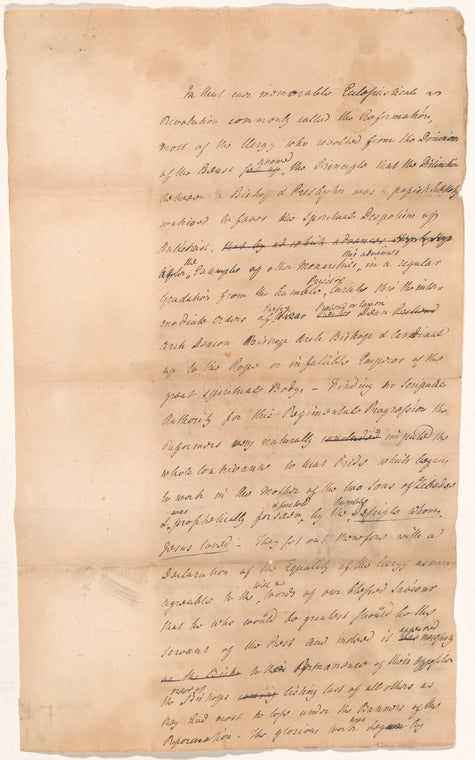 In that ever memorable Eclesiastical
Revolution commonly called the Reformation,
most of the Clergy who revolted from the Dominion
of the Beast set up avowed the Principle that the Distinction
between a Bishop & Presbyter was a popish
contrived to favor the Spiritual Despotism of
Antichrist. that by as which advances Step by Step
after the Example of other Monarchies, this advances in a regular
gradation from the humble Curate thro the inter
mediate orders of Vicar Dean
Arch Deacon Bishop Arch Bishop & Cardinal
up to the Pope or infallible Emperor of this
great spiritual Body. – Finding no Scriptural
Authority for this Regimental Progression the
Reformers very naturally concluded imputed the
whole contrivance to that Pride which began
to work in the Mother of the two Sons of Zebedee
& was prophetically foreseen & foretold by the humble Desciple whom
Jesus loved – They set out therefore with a
Declaration of the Equality of the Clergy as more
agreeable to the words of our blessed Saviour
that he who would be greatest should be the
servant of the Rest and indeed it appeared was necessary
to the Permanence of their
the Bishops coming listing last of all others as
they had most to lose under the Banners of the
Reformation. The glorious work was begun by